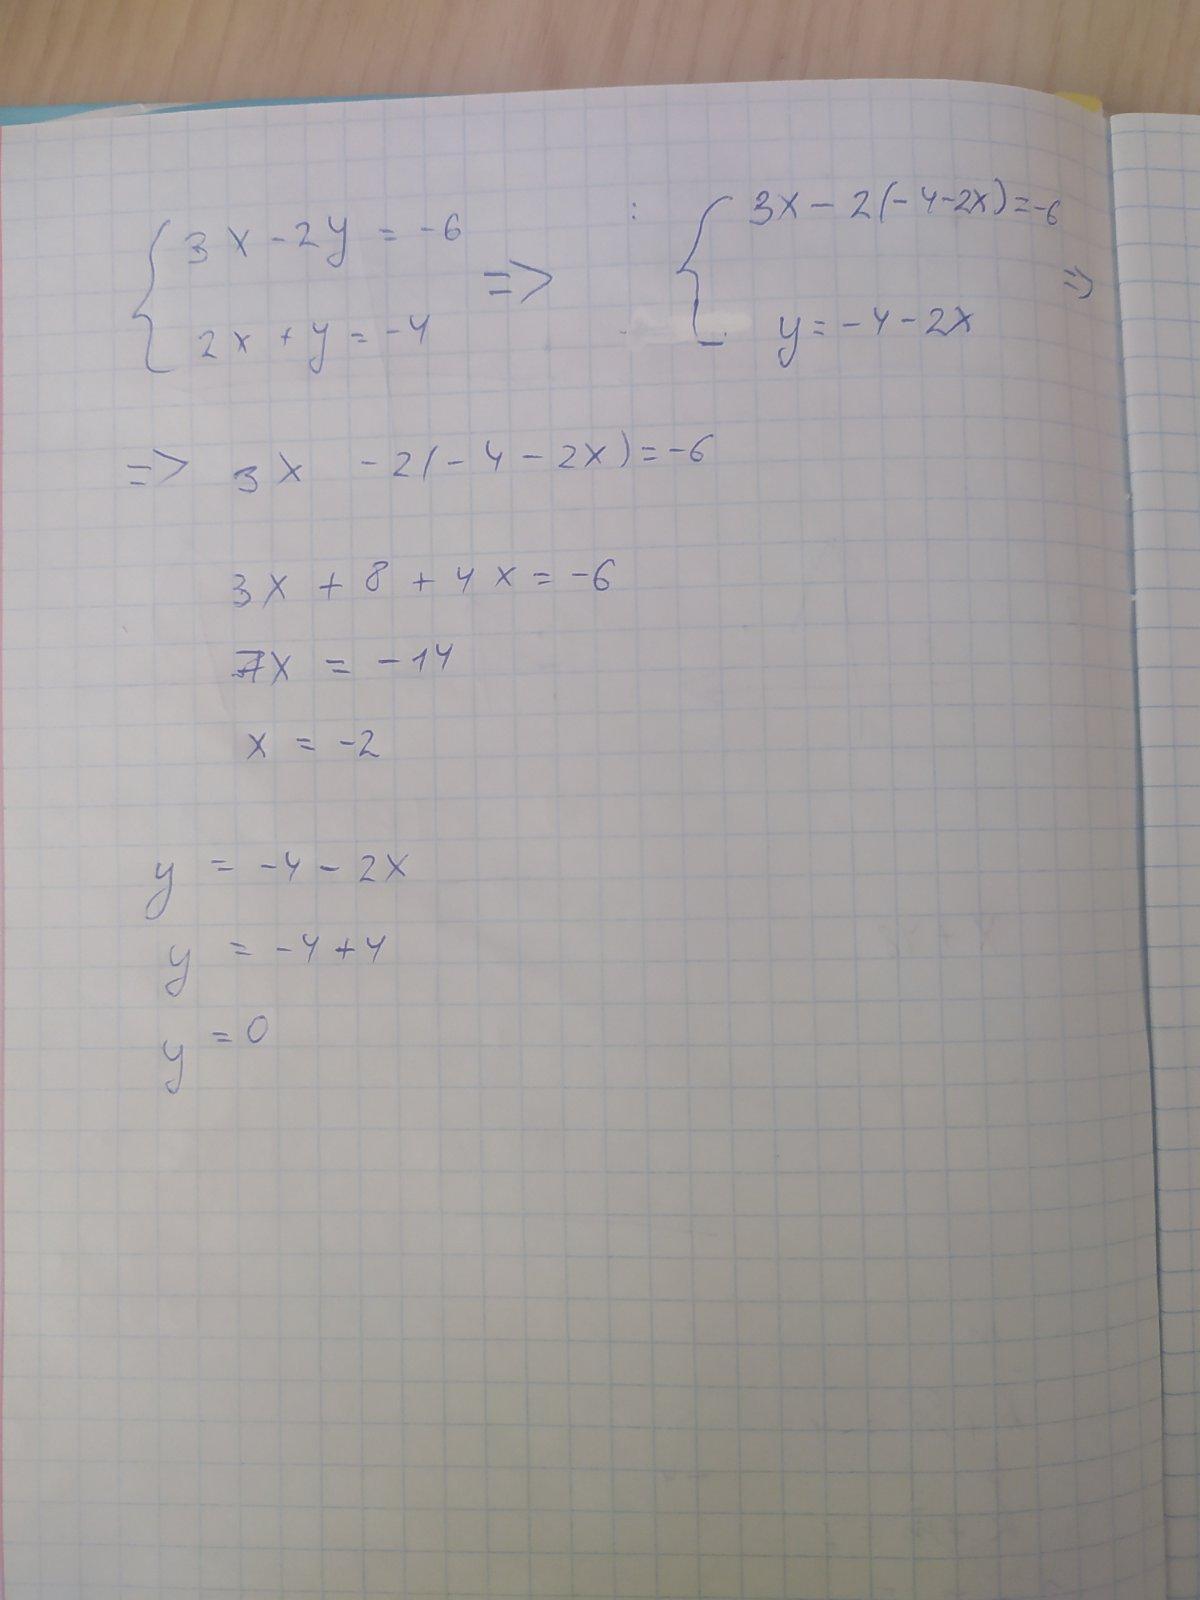 3x - 2y = -6 => : 3x - 2(-4-2x) = -6
2x + y = -4 y = -4 - 2x =>
=> 3x - 2(-4 - 2x) = -6
3x + 8 + 4x = -6
7x = -14
x = -2
y = -4 - 2x
y = -4 + 4
y = 0